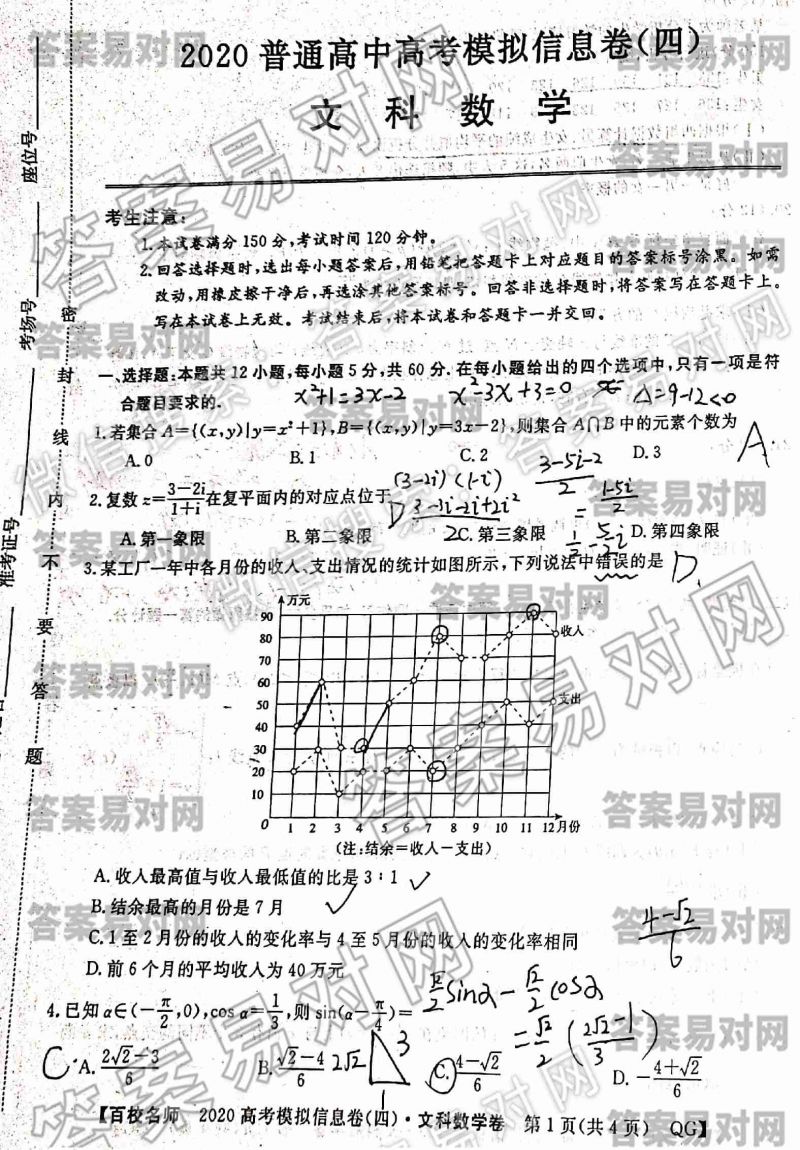 2020普通高中高考模拟信息卷(四)
文 科 数 学
座位号
考场号
准考证号
密 封 线 内 不 要 答 题
考生注意:
1.本试卷满分150分,考试时间120分钟。
2.回答选择题时,选出每小题答案后,用铅笔把答题卡上对应题目的答案标号涂黑。如需
改动,用橡皮擦干净后,再选涂其他答案标号。回答非选择题时,将答案写在答题卡上。
写在本试卷上无效。考试结束后,将本试卷和答题卡一并交回。
一、选择题:本题共12小题,每小题5分,共60分.在每小题给出的四个选项中,只有一项是符
合题目要求的.
x²+1=3x-2 x²-3x+3=0 Δ=9-12<0
1.若集合A={(x,y)|y=x²+1},B={(x,y)|y=3x-2},则集合A∩B中的元素个数为
A.0 B.1 C.2 D.3
A.
2.复数z=(3-2i)/(1+i)在复平面内的对应点位于
D
(3-2i)(1-i)
3-3i-2i+2i²
2
(3-5i-2)/2
=(1-5i)/2
1/2-5/2i
A.第一象限 B.第二象限 C.第三象限 D.第四象限
3.某工厂一年中各月份的收入、支出情况的统计如图所示,下列说法中错误的是
D.
万元
90
80
70
60
50
40
30
20
10
0 1 2 3 4 5 6 7 8 9 10 11 12月份
收入
支出
(注:结余=收入-支出)
A.收入最高值与收入最低值的比是3:1 ✓
B.结余最高的月份是7月 ✓
C.1至2月份的收入的变化率与4至5月份的收入的变化率相同
D.前6个月的平均收入为40万元
(4-√2)/6
4.已知α∈(-π/2,0),cos α=1/3,则sin(α-π/4)=
√2/2 sinα-√2/2 cosα
=√2/2((2√2-1)/3)
C
A.(2√2-3)/6 B.(√2-4)/6 C.(4-√2)/6 D.-(4+√2)/6
2√2 3 1
【百校名师 2020高考模拟信息卷(四)·文科数学卷 第1页(共4页) QG】
答案易对网
微信搜索:答案易对网